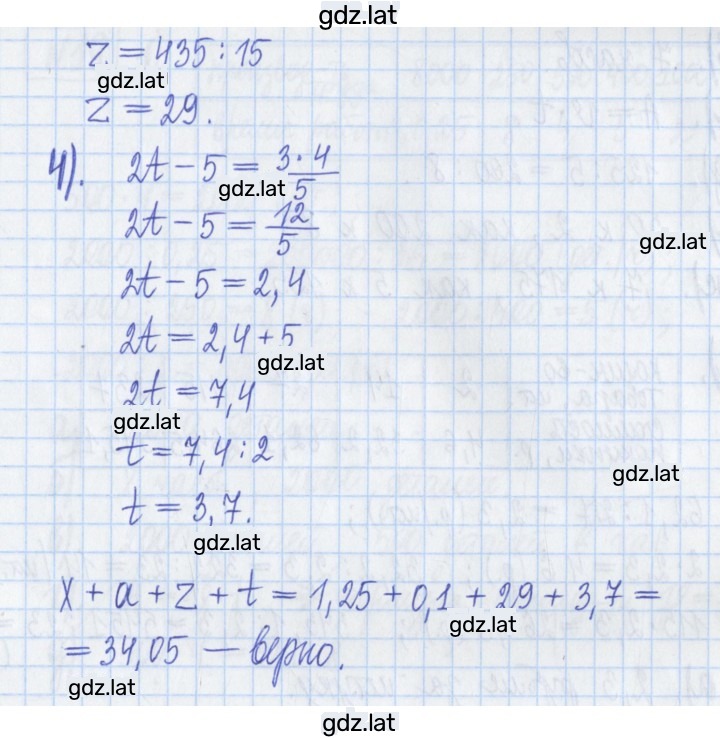 gdz.lat
z = 435 : 15
gdz.lat
z = 29.
4). 2t − 5 = 3·4/5
gdz.lat
2t − 5 = 12/5
gdz.lat
2t − 5 = 2,4
2t = 2,4 + 5
gdz.lat
2t = 7,4
gdz.lat
t = 7,4 : 2
gdz.lat
t = 3,7.
gdz.lat
x + a + z + t = 1,25 + 0,1 + 29 + 3,7 =
gdz.lat
= 34,05 — верно.
gdz.lat
gdz.lat